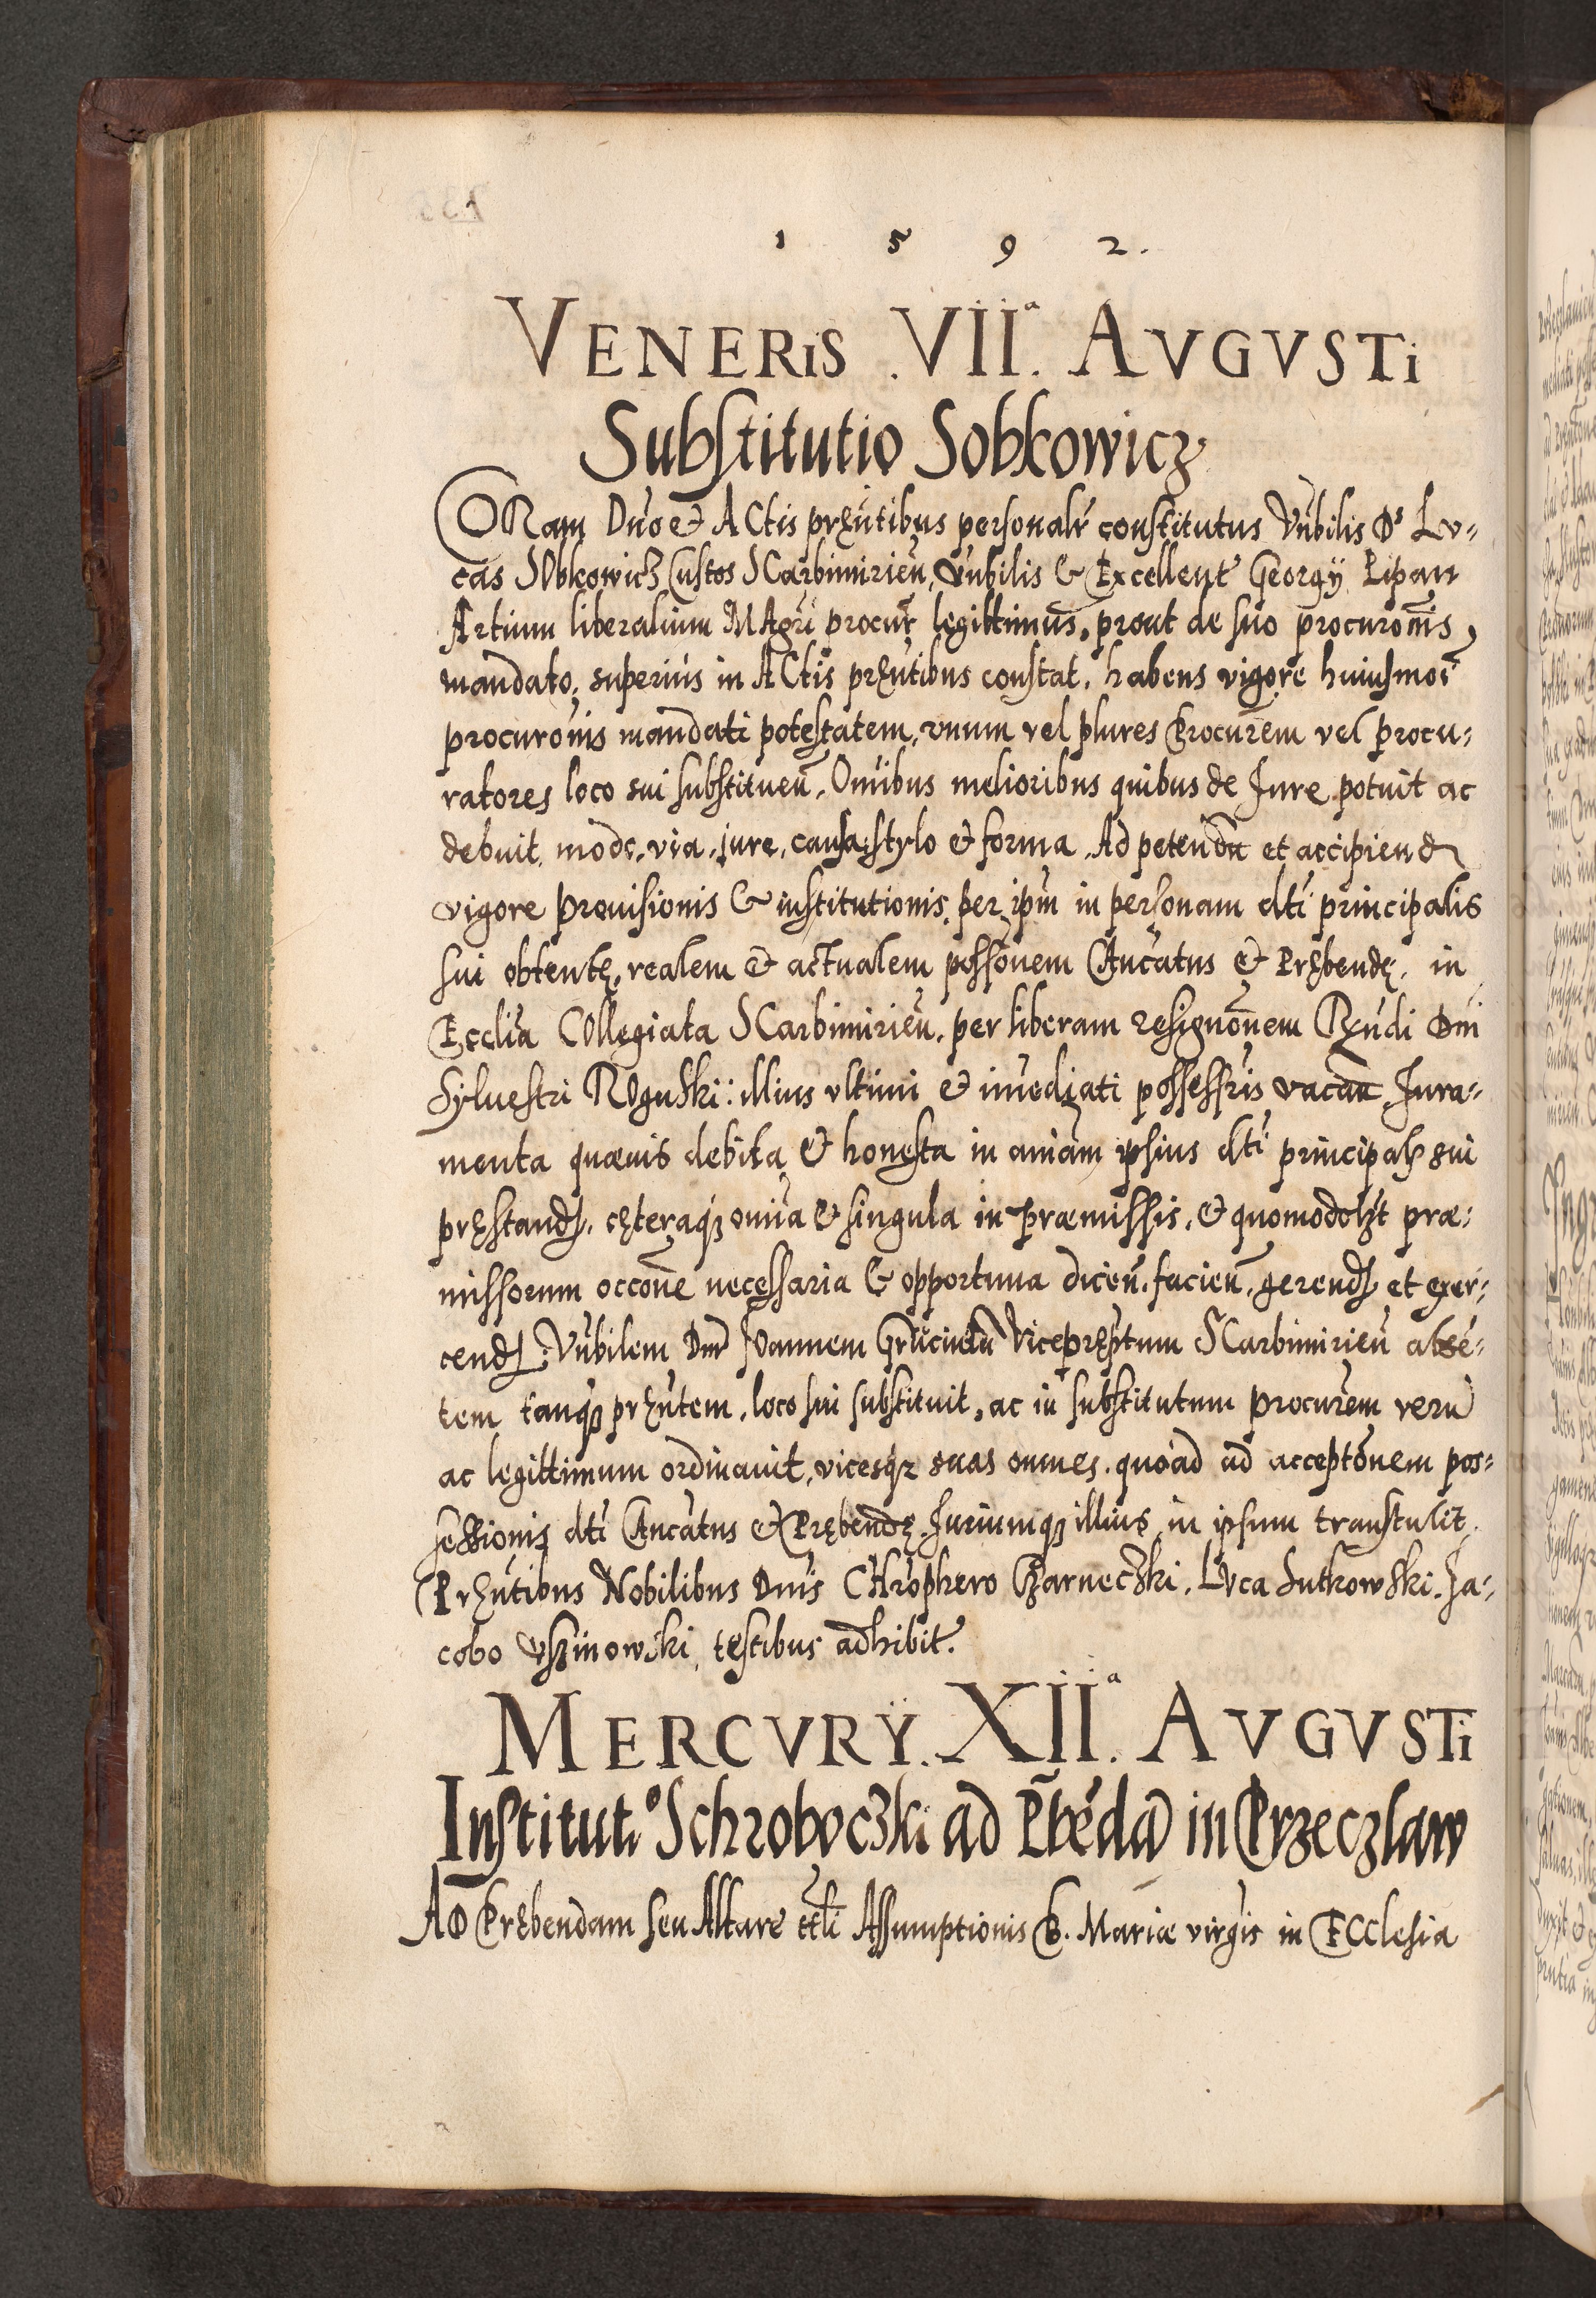 1 5 9 2.
VENERiS .VII.ª AVGVSTi
Substitutio Sobkowicz
CORam Dno et ACtis prȩntibus personalr constitutus Vnbilis Ds Lv-
cas SObkowicz Custos SCarbimirien, Vnbilis & Excellent Georgÿ Pipan
Artium liberalium MAgri procur legittimus, prout de suo procuronis
mandato, superius in ACtis prȩntibus constat, habens vigore huiusmoi
procuronis mandati potestatem, vnum vel plures Procurem vel procu-
ratores loco sui substituen, Omibus melioribus quibus de Jure potuit ac
debuit, modo, via, jure, causa, stylo & forma, Ad petendu et accipiend
vigore Prouisionis & institutionis per ipm in personam dti principalis
sui obtentȩ, realem & actualem possonem CAncatus & Prȩbendȩ, in
Ecclia COllegiata SCarbimirien, per liberam resignonem Rȩndi Dni
Syluestri ROguski: illius vltimi & imediati possessris vacan, Jura-
menta quæuis debita & honesta in aniam ipsius dti principalis sui
prȩstand, cȩteraqz omia & singula in præmissis, & quomodolzt præ-
missorum occone necessaria & opportuna dicen, facien, gerend et exer-
cend, Vnbilem Dnm JOannem Vicepreptum SCarbimirien absē-
tem tanqz prȩntem, loco sui substituit, ac in substitutum Procurem veru
ac legittimum ordinauit, vicesqz suas omnes, quoad ad acceptonem pos-
sessionis dti CAncatus & Prȩbendȩ Juriumqz illius in ipsum transtulit.
Prȩntibus Nobilibus Dnis CHrophero CZarneczki, LVca Sutkowski, Ja-
cobo Vszinowski, testibus adhibit.
MERCVRŸ. XII.ª AVGVSTi
Institutio Schroboczki ad Pbēdā in Przeczlaw
AD Prȩbendam seu Altare ttli Assumptionis B. Mariæ virgis in ECclesia